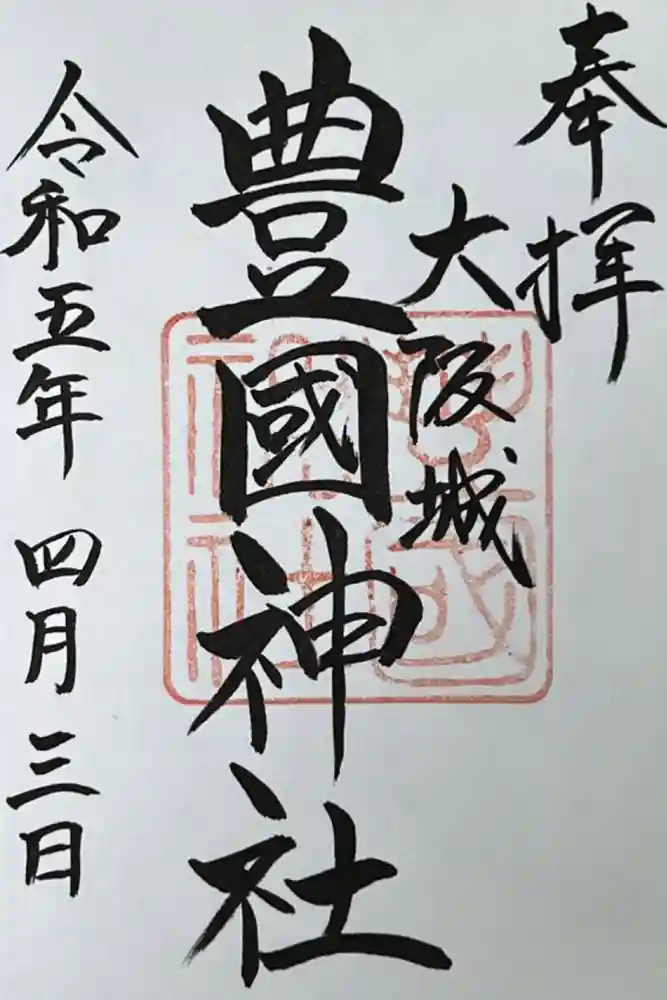 奉拝
大阪城
豊國神社
令和五年 四月三日
豊國神社